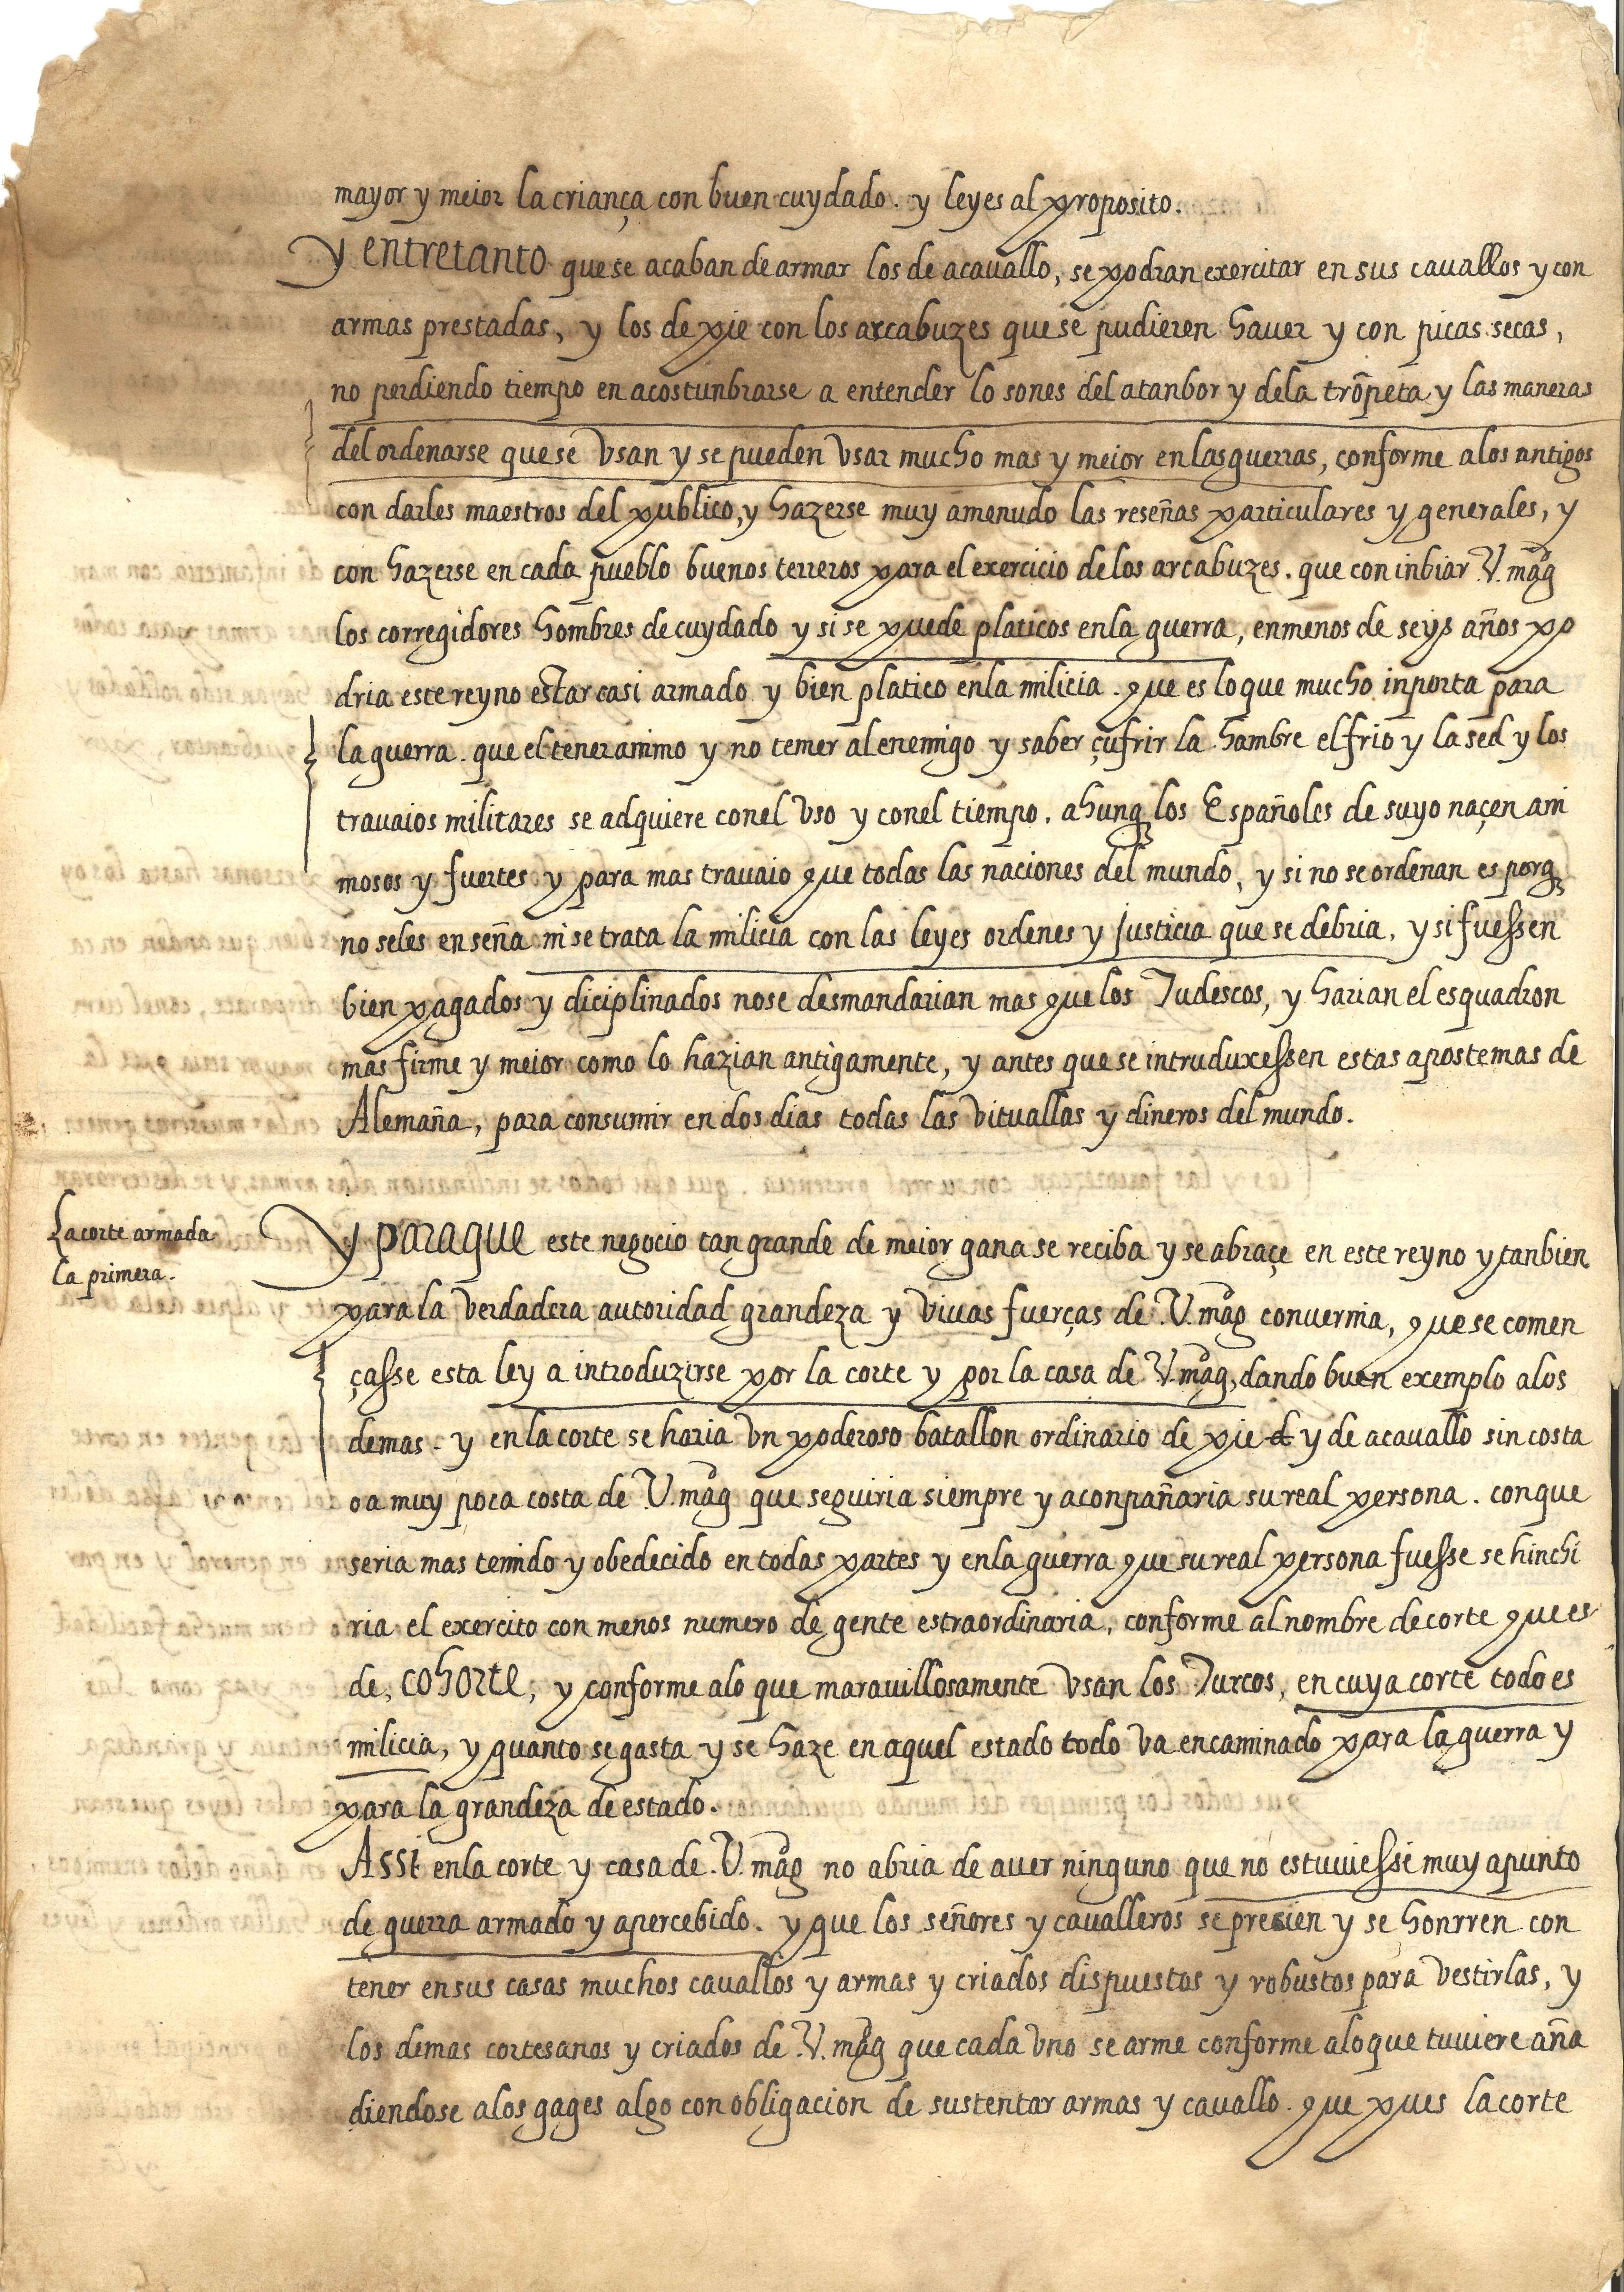 mayor y meior la criança con buen cuydado. y leyes al proposito.
y entretanto que se acaban de armar los de acauallo, se podran exercitar en sus cauallos y con
armas prestadas, y los de pie con los arcabuzes que se pudieren hauer y con picas secas,
no perdiendo tiempo en acostunbrarse a entender lo sones del atanbor y dela trõpeta y las maneras
del ordenarse que se vsan y se pueden vsar mucho mas y meior en las guerras, conforme a los antigos
con darles maestros del publico, y hazerse muy amenudo las reseñas particulares y generales, y
con hazerse en cada pueblo buenos terreros para el exercicio de los arcabuzes. que con inbiar V. mag
los corregidores hombres de cuydado y si se puede platicos en la guerra, en menos de seys años po
dria este reyno estar casi armado y bien platico en la milicia. que es lo que mucho inporta para
la guerra. que el tener animo y no temer al enemigo y saber çufrir la hambre el frio y la sed y los
trauaios militares se adquiere con el vso y con el tiempo. ahunq los Españoles de suyo naçen ani
mosos y fuertes y para mas trauaio que todas las naciones del mundo, y si no se ordenan es porq
no seles enseña ni se trata la milicia con las leyes ordenes y justicia que se debria, y si fuessen
bien pagados y diciplinados nose desmandarian mas que los Tudescos, y harian el esquadron
mas firme y meior como lo hazian antigamente, y antes que se intruduxessen estas apostemas de
Alemaña, para consumir en dos dias todas las vituallas y dineros del mundo.
La corte armada
la primera.
y paraque este negocio tan grande de meior gana se reciba y se abraçe en este reyno y tanbien
para la verdadera autoridad grandeza y viuas fuerças de V. mag conuernia, que se comen
çasse esta ley a introduzirse por la corte y por la casa de V. mag, dando buen exemplo alos
demas. y en la corte se haria vn poderoso batallon ordinario de pie d y de acauallo sin costa
o a muy poca costa de V mag que seguiria siempre y aconpañaria su real persona. con que
seria mas temido y obedecido en todas partes y en la guerra que su real persona fuesse se hinchi
ria el exercito con menos numero de gente estraordinaria, conforme al nombre de corte que es
de, cohorte, y conforme alo que marauillosamente vsan los Turcos, en cuya corte todo es
milicia, y quanto se gasta y se haze en aquel estado todo va encaminado para la guerra y
para la grandeza de estado.
Assi en la corte y casa de V. mag no abria de auer ninguno que no estuuiesse muy apunto
de guerra armado y apercebido. y que los señores y caualleros se precien y se honrren con
tener en sus casas muchos cauallos y armas y criados dispuestos y robustos para vestirlas, y
los demas cortesanos y criados de V. mag que cada vno se arme conforme alo que tuuiere aña
diendose alos gages algo con obligacion de sustentar armas y cauallo. que pues la corte